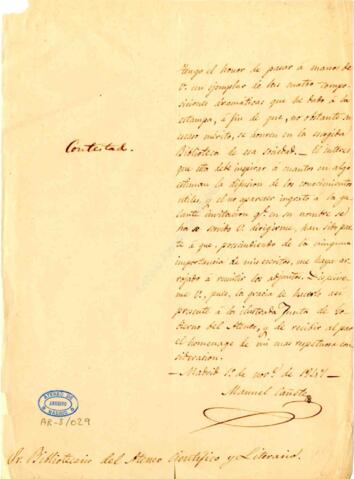 Contestad.
Tengo el honor de pasar a manos de
V. un ejemplar de las cuatro compo-
siciones dramaticas que he dado à la
estampa, à fin de que, no obstante su
escaso mérito, se honren en la escogida
Biblioteca de esa sociedad. El interes
que esta debe inspirar à cuantos en algo
estiman la difusion de los conocimientos
utiles, y el no aparecer ingrato a la ga-
lante invitacion qe. en su nombre se
ha servido V. dirigirme, han sido par-
te à que, prescindiendo de la ninguna
importancia de mis escritos, me haya ar-
rojado à remitir los adjuntos. Dispénse-
me V., pues, la gracia de hacerlo así
presente à la ilustrada Junta de Go-
bierno del Ateneo, y de recibir al par
el homenage de mi mas respetuosa con-
sideracion.
Madrid 1º de novе. de 1847.
Manuel Cañete
ATENEO DE
ARCHIVO
MADRID
AR-5/029
Sr. Bibliotecario del Ateneo Cientifico y Literario.